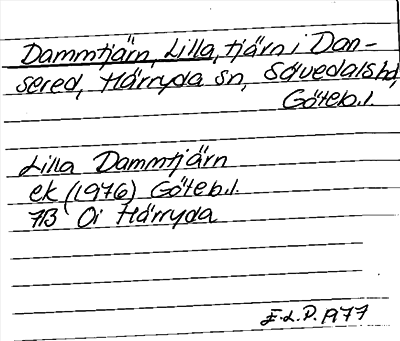 Dammtjärn, Lilla, tjärn i Dan-
sered, Härryda sn, Sävedals hd,
Göteb.l.
Lilla Dammtjärn
ek (1976) Göteb.l.
7B Oi Härryda
E.L.P. 1977